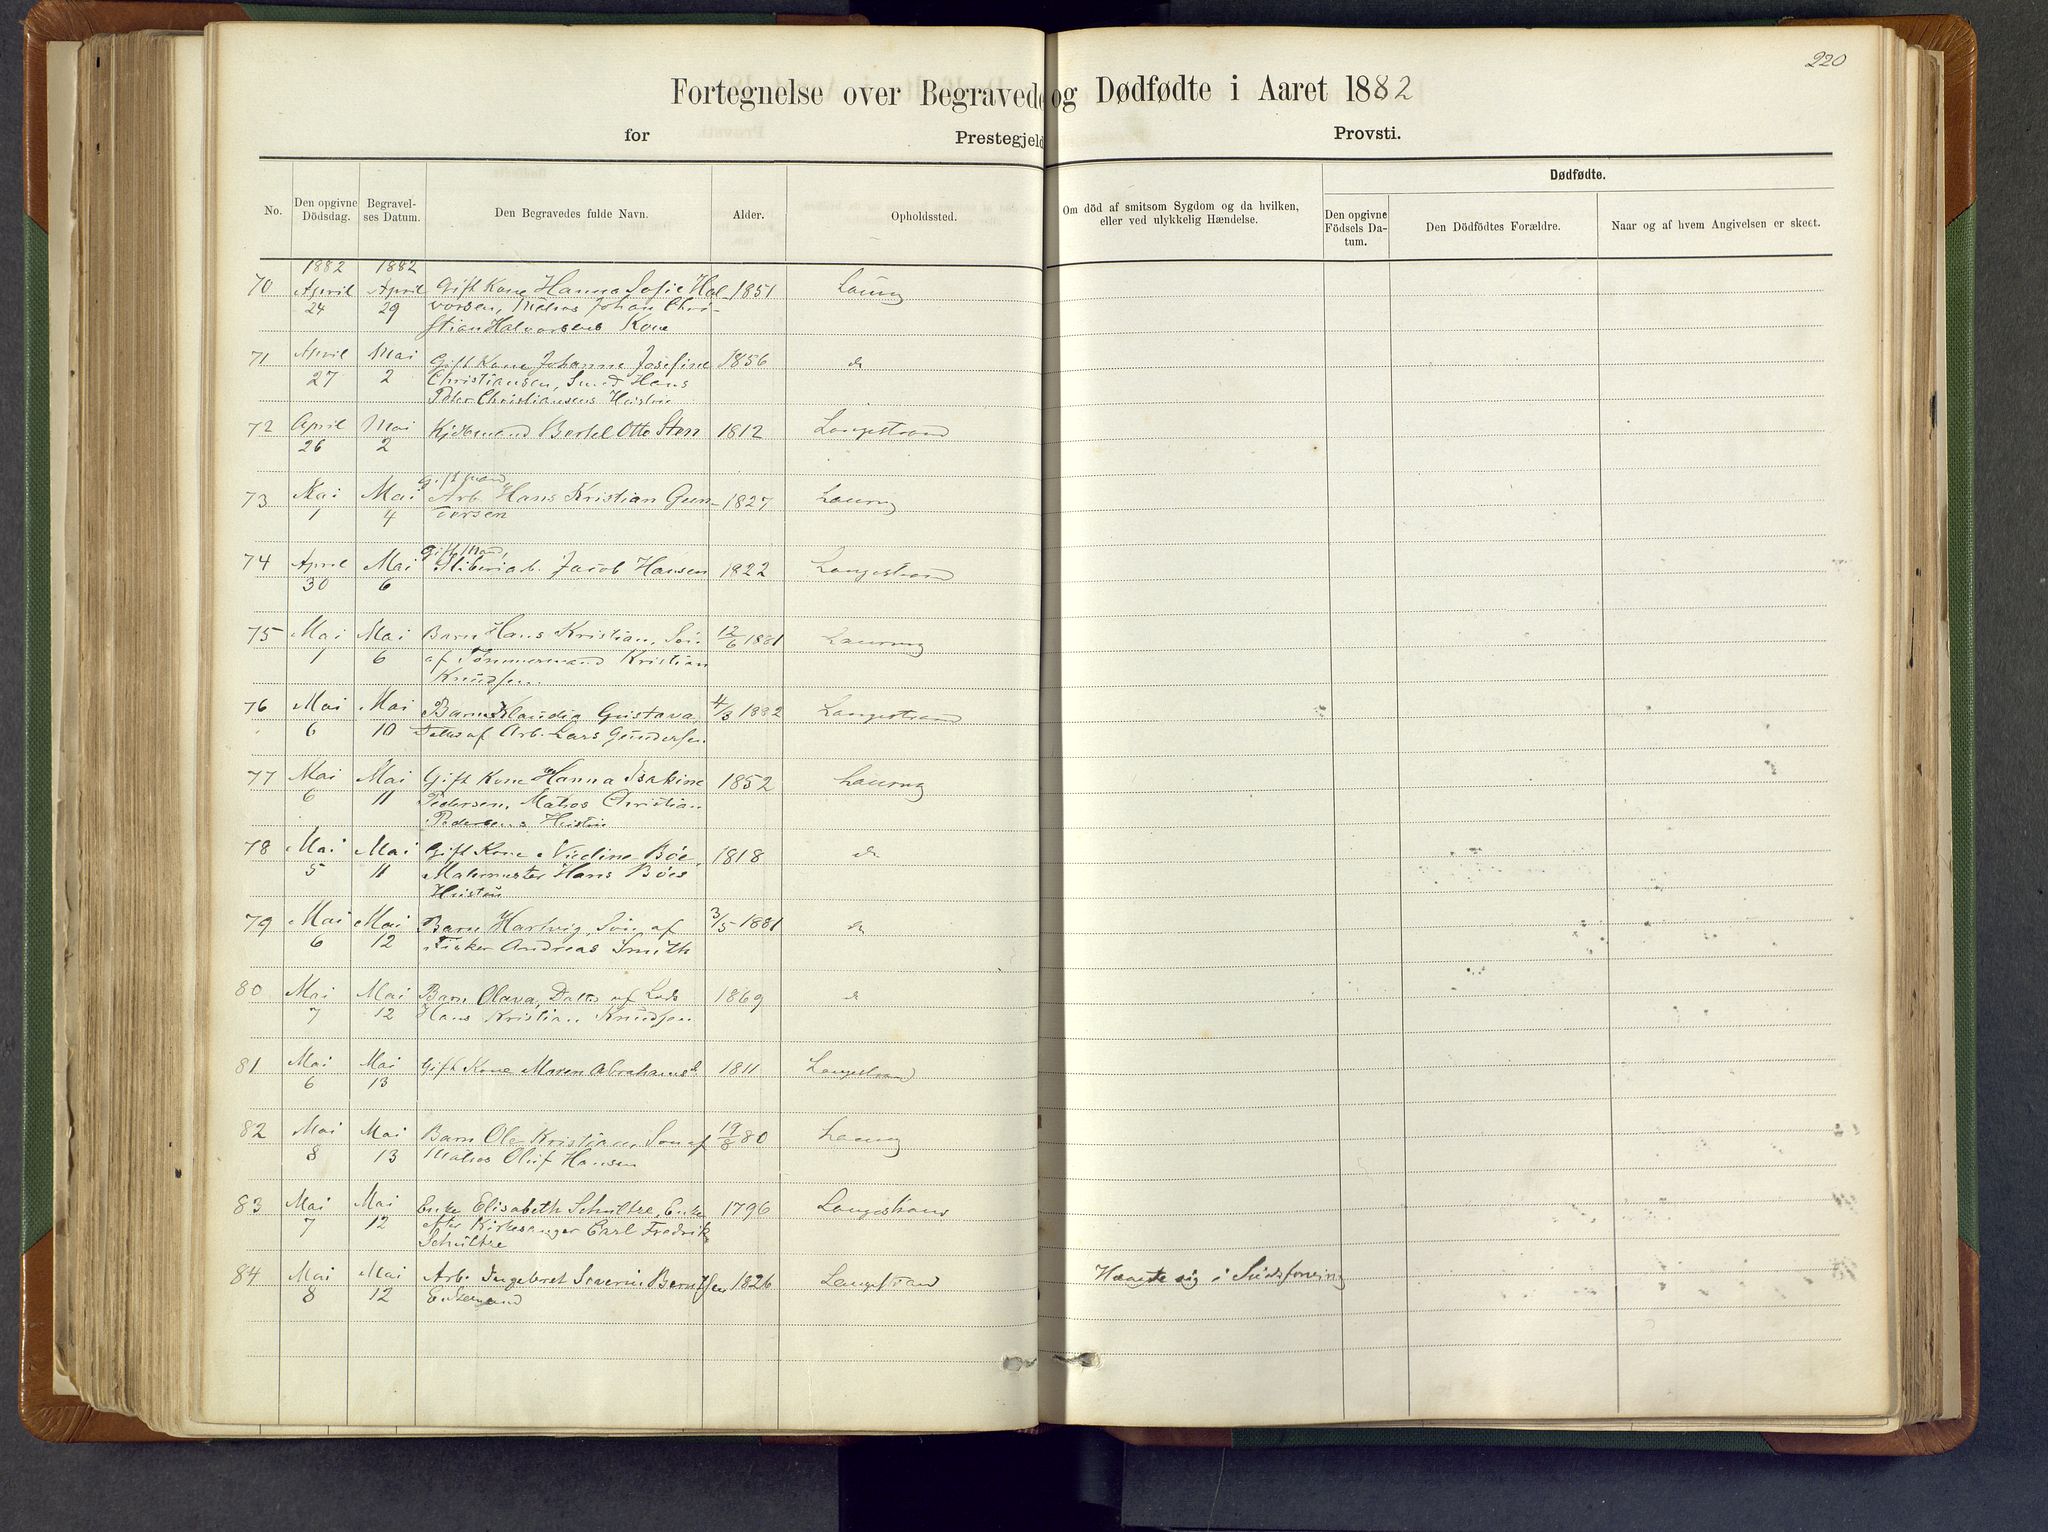 220
Fortegnelse over Begravede og Dødfødte i Aaret 1882
for Prestegjeld Provsti.
Dødfødte.
No.
Den opgivne Dödsdag.
Begravelses Datum.
Den Begravedes fulde Navn.
Alder.
Opholdssted.
Om död af smitsom Sygdom og da hvilken, eller ved ulykkelig Hændelse.
Den opgivne Födsels Datum.
Den Dödfödtes Forældre.
Naar og af hvem Angivelsen er skeet.
1882 1882
70 April April Gift Kone Hanna Sofie Hal- 1851 Laurv
24 29 vorsen, Matros Johan Chri-
stian Halvorsens Kone
71 April Mai Gift Kone Johanne Josefine 1856 do
27 2 Christiansen, Smed Hans
Peter Christiansens Hustru
72 April Mai Kjöbmand Bertel Otto Sten 1812 Langestrand
26 2
Gift Mand
73 Mai Mai Arb. Hans Kristian Gun- 1827 Laurvg
1 4 dersen
Gift Mand,
74 April Mai Sliberiarb. Jacob Hansen 1822 Langestrand
30 6
75 Mai Mai Barn Hans Kristian, Sön 12/6 1881 Laurvg
1 6 af Tömmermand Kristian
Knudsen
76 Mai Mai Barn Klaudia Gustava, 4/3 1882 Langestrand
6 10 Datter af Arb. Lars Gundersen
77 Mai Mai Gift Kone Hanna Isakine 1852 Laurvg
6 11 Pedersen, Matros Christian
Pedersens Hustru
78 Mai Mai Gift Kone Böe, 1818 do
5 11 Malermester Hans Böes
Hustru
79 Mai Mai Barn Hartvig, Sön af 3/5 1881 do
6 12 Fisker Andreas Smith
80 Mai Mai Barn Olava, Datter af Lods 1869 do
7 12 Hans Kristian Knudsen
81 Mai Mai Gift Kone Maren Abrahamsd 1811 Langestrand
6 13
82 Mai Mai Barn Ole Kristian, Sön af 19/8 80 Laurvg
8 13 Matros Oluf Hansen
83 Mai Mai Enke Elisabeth Schultze, Enke 1796 Langestrand
7 12 efter Kirkesanger Carl Fredrik
Schultze
84 Mai Mai Arb. Ingebret Severin Berntsen 1826 Langestrand Hængte sig i
8 12 Enkemand